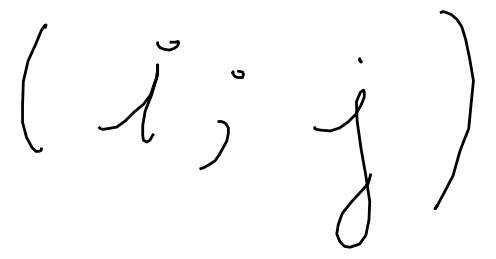 ( i ; j )